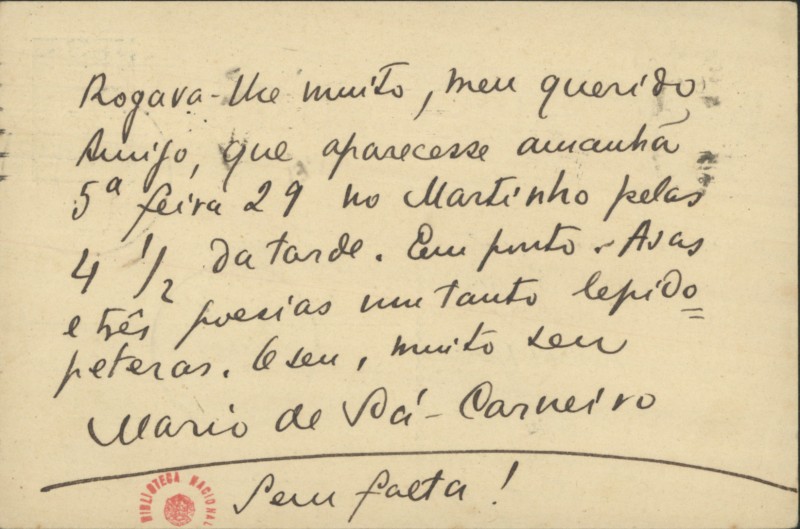 Rogava-lhe muito, meu querido
Amigo, que aparecesse amanhã
5ª feira 29 no Martinho pelas
4 1/2 da tarde. Em ponto. Asas
e três poesias um tanto lepido=
pteras. O seu, muito seu
Mario de Sá-Carneiro
Sem falta!
BIBLIOTECA NACIONAL